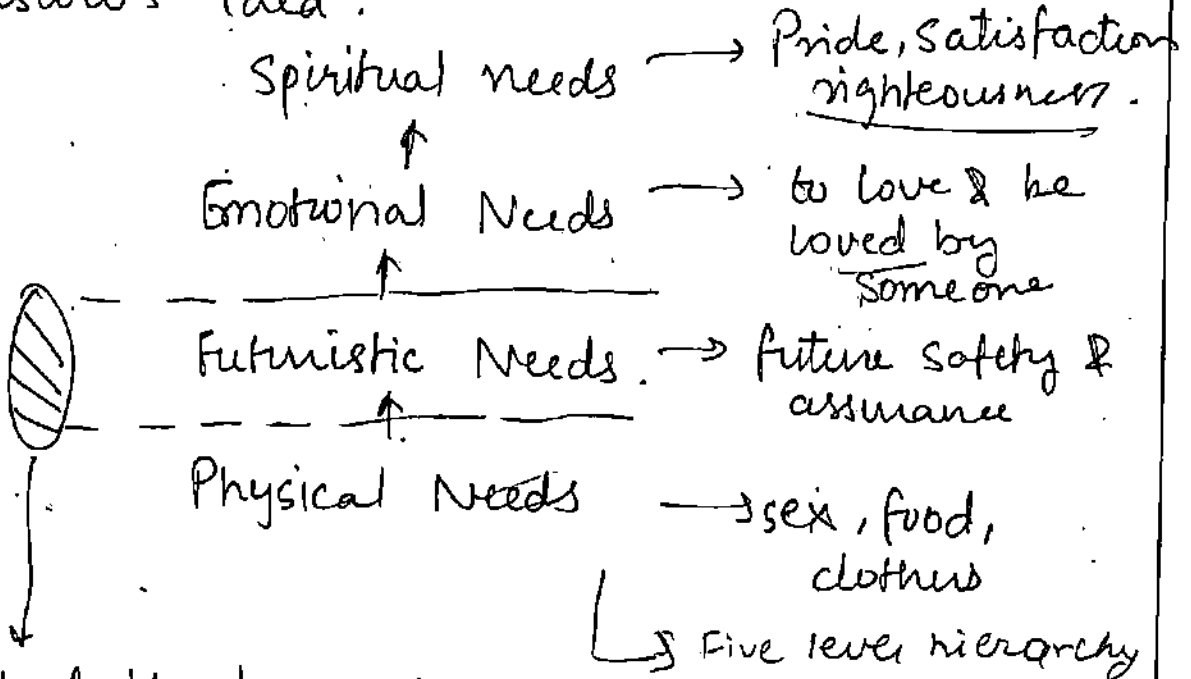 idea.
Spiritual needs → Pride, Satisfaction
righteousness.
Emotional Needs → to love & be
loved by
someone
Futuristic Needs. → future safety &
assurance
Physical Needs → sex, food,
clothes
Five level hierarchy